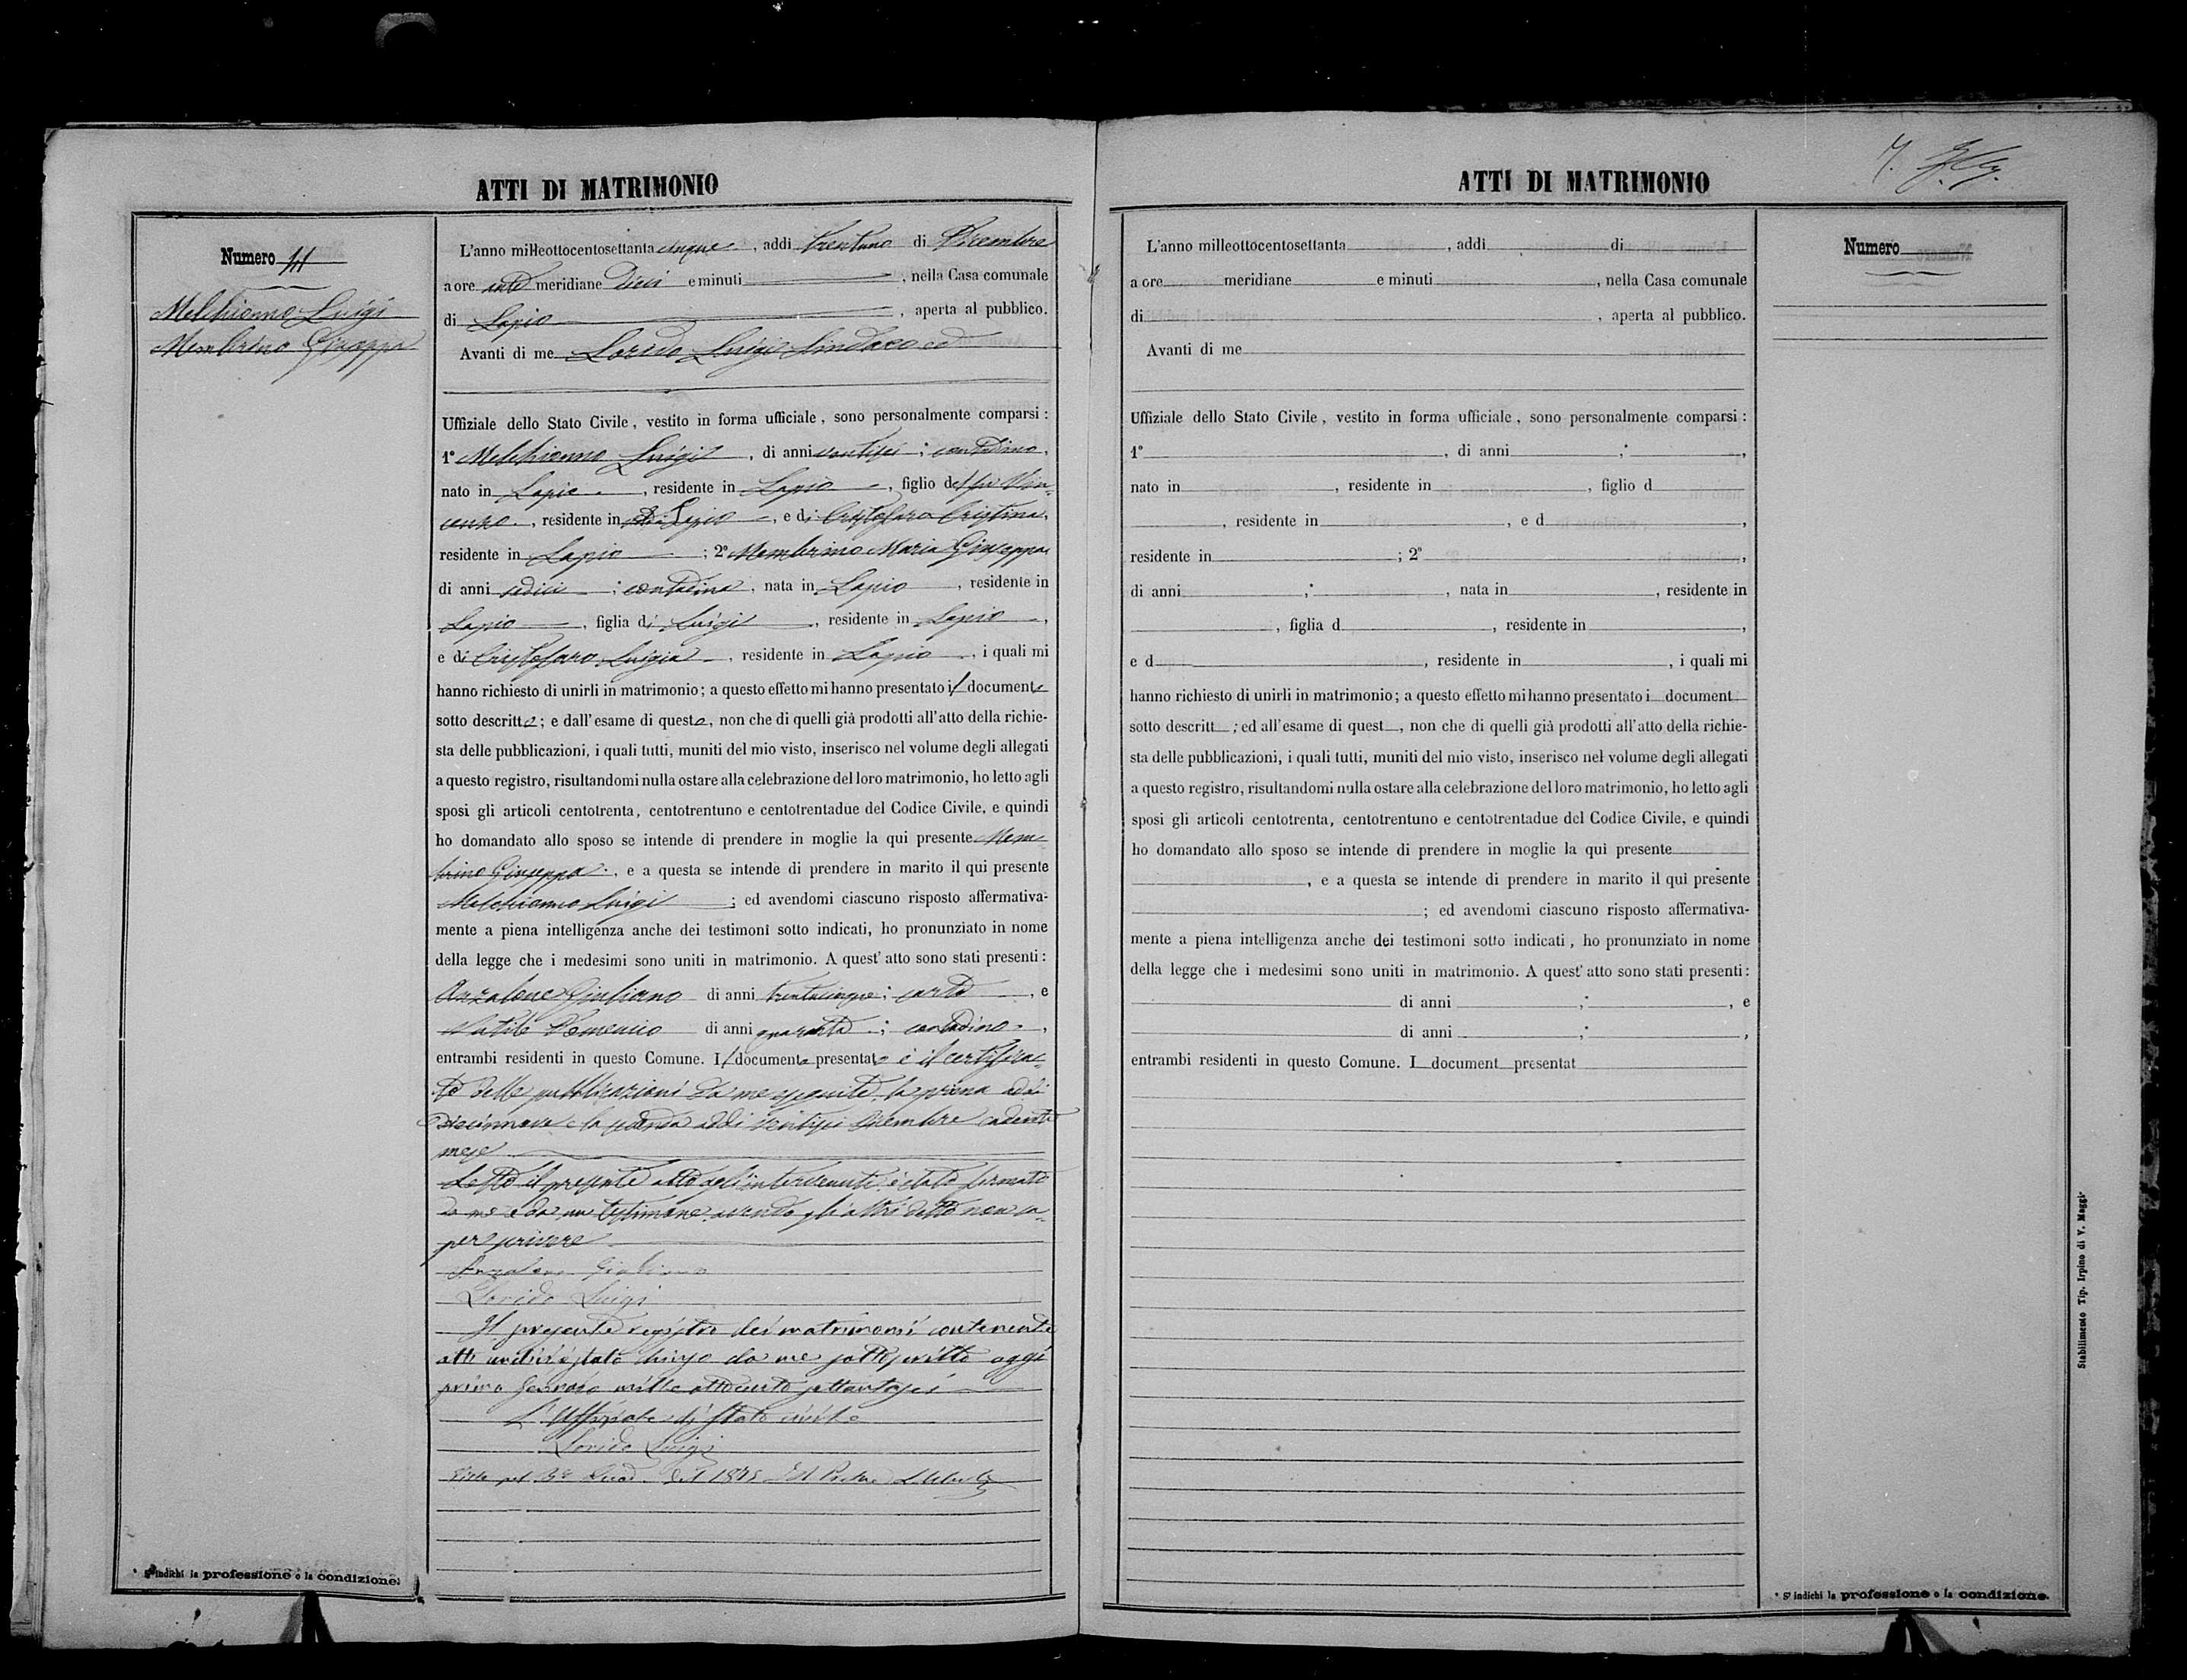 ATTI DI MATRIMONIO
Numero 11
Melchionno Luigi
Membrino Giuseppa
L'anno milleottocentosettanta cinque, addi trentuno di Dicembre
a ore ante meridiane dieci e minuti, nella Casa comunale
di Lapio, aperta al pubblico.
Avanti di me Lorido Luigi Sindaco ed
Uffiziale dello Stato Civile, vestito in forma ufficiale, sono personalmente comparsi:
1° Melchionno Luigi, di anni ventisei; contadino,
nato in Lapio, residente in Lapio, figlio del fu Vin-
cenzo, residente in Lapio, e di Cristofaro Cristina,
residente in Lapio; 2° Membrino Maria Giuseppa,
di anni sedici; contadina, nata in Lapio, residente in
Lapio, figlia di Luigi, residente in Lapio,
e di Cristofaro Luigia, residente in Lapio, i quali mi
hanno richiesto di unirli in matrimonio; a questo effetto mi hanno presentato il documento
sotto descritto; e dall'esame di questo, non che di quelli già prodotti all'atto della richie-
sta delle pubblicazioni, i quali tutti, muniti del mio visto, inserisco nel volume degli allegati
a questo registro, risultandomi nulla ostare alla celebrazione del loro matrimonio, ho letto agli
sposi gli articoli centotrenta, centotrentuno e centotrentadue del Codice Civile, e quindi
ho domandato allo sposo se intende di prendere in moglie la qui presente Mem-
brino Giuseppa, e a questa se intende di prendere in marito il qui presente
Melchionno Luigi; ed avendomi ciascuno risposto affermativa-
mente a piena intelligenza anche dei testimoni sotto indicati, ho pronunziato in nome
della legge che i medesimi sono uniti in matrimonio. A quest'atto sono stati presenti:
Anzalone Giuliano di anni trentacinque; sarto, e
Natile Domenico di anni quaranta; contadino,
entrambi residenti in questo Comune. Il documento presentato è il certifica-
to delle pubblicazioni da me eseguite, la prima addi
diecinnove e la seconda addi ventisei Dicembre cadente
mese
Letto il presente atto agli intervenuti è stato firmato
da me e da un testimone avendo gli altri detto non sa-
per scrivere
Anzalone Giuliano
Lorido Luigi
Il presente registro dei matrimonii contenente
atti undici è stato chiuso da me sottoscritto oggi
primo Gennaio mille ottocento settantasei
L'Uffiziale di Stato civile
Lorido Luigi
1875 Il Pretore
* S'indichi la professione o la condizione.
ATTI DI MATRIMONIO
Numero
L'anno milleottocentosettanta, addi di
a ore meridiane e minuti, nella Casa comunale
di, aperta al pubblico.
Avanti di me
Uffiziale dello Stato Civile, vestito in forma ufficiale, sono personalmente comparsi:
1°, di anni;
nato in, residente in, figlio d
, residente in, e d,
residente in; 2°,
di anni;, nata in, residente in
, figlia d, residente in,
e d, residente in, i quali mi
hanno richiesto di unirli in matrimonio; a questo effetto mi hanno presentato i document
sotto descritt; ed all'esame di quest, non che di quelli già prodotti all'atto della richie-
sta delle pubblicazioni, i quali tutti, muniti del mio visto, inserisco nel volume degli allegati
a questo registro, risultandomi nulla ostare alla celebrazione del loro matrimonio, ho letto agli
sposi gli articoli centotrenta, centotrentuno e centotrentadue del Codice Civile, e quindi
ho domandato allo sposo se intende di prendere in moglie la qui presente
, e a questa se intende di prendere in marito il qui presente
; ed avendomi ciascuno risposto affermativa-
mente a piena intelligenza anche dei testimoni sotto indicati, ho pronunziato in nome
della legge che i medesimi sono uniti in matrimonio. A quest'atto sono stati presenti:
di anni;, e
di anni;,
entrambi residenti in questo Comune. I document presentat
Stabilimento Tip. Irpino di V. Maggi
* S'indichi la professione o la condizione.